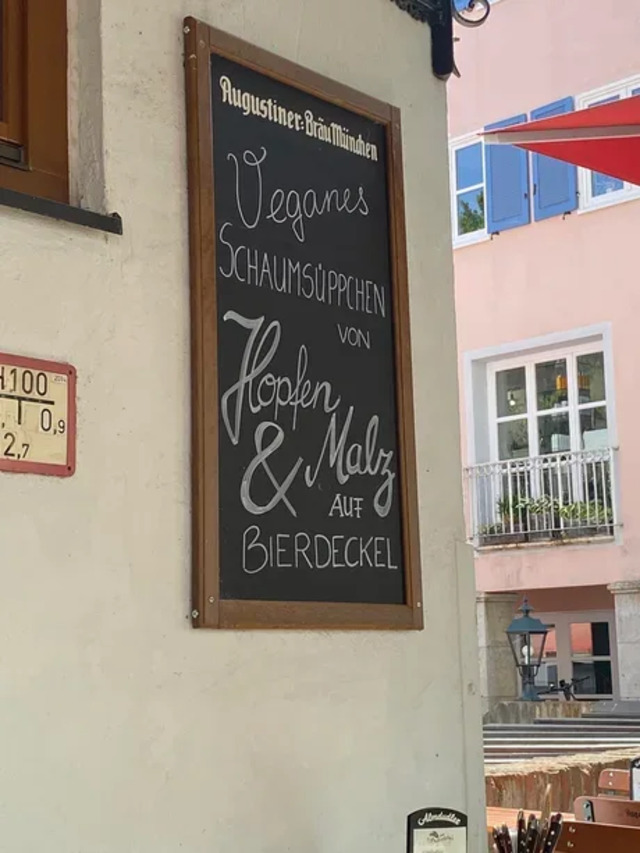 Augustiner-Bräu München
Veganes
SCHAUMSÜPPCHEN
VON
Hopfen
& Malz
AUF
BIERDECKEL
H100
0,9
2,7
Almdudler